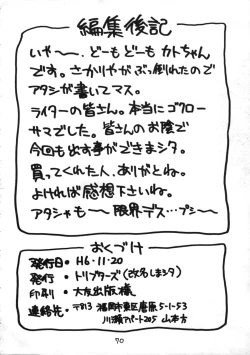 編集後記
いや〜〜、どーもどーもカトちゃん
です。さかりやがぶっ倒れたので
アタシが書いてマス。
ライターの皆さん。本当にゴクロー
サマでした。皆さんのお陰で
今回も出す事ができまシタ。
買ってくれた人、ありがとね。
よければ感想下さいね。
アタシゃも〜〜限界デス…プシ〜〜
おくづけ
発行日・H6・11・20
発行・トリプターズ(改名しまシタ)
印刷・大友出版様
連絡先・〒813 福岡市東区唐原5-1-53
川瀬アパート205 山本方
70